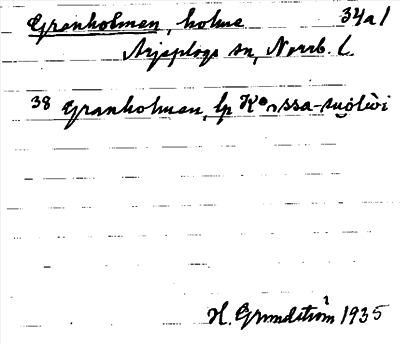 Granholmen, holme 34a1
Arjeplogs sn, Norrb. L.
38 Granholmen, lp
H. Grundström 1935